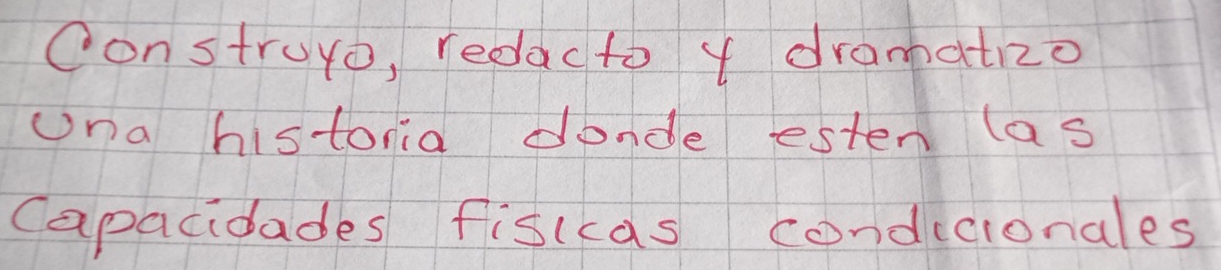 Construyo, redacto y dramatizo
una historia donde esten las
capacidades físicas condicionales